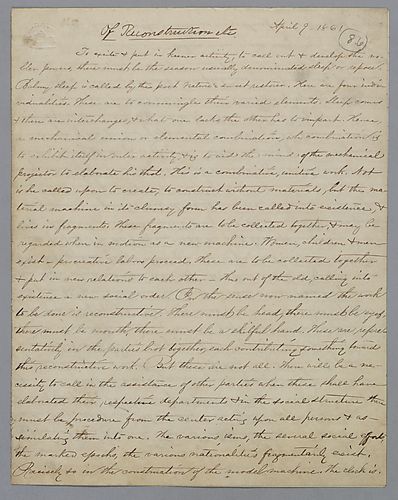 Of Reconstruction etc.
April 9 1861
86
To excite & put in keener activity, to call out & develope the
powers, there must be the season usually denominated sleep or repose.
Balmy sleep is called by the poet nature's sweet restorer. Here are four indi-
vidualities. These are to commingle their varied elements. Sleep comes
& there are interchanges, & what one lacks the other has to impart. Hence
a mechanical union or elemental combination, wh combination is
to exhibit itself in outer activity, & is to aid the mind of the mechanical
projector to elaborate his thot. This is a combinative, unitive work. Not
is he called upon to create, to construct without materials, but the ma-
terial machine in its clumsy form has been called into existence, &
lies in fragments. These fragments are to be collected together, & may be
regarded when in motion as a new machine. Women, children & men
exist & procreative labors proceed. These are to be collected together
& put in new relations to each other & thus out of the old, calling into
existence a new social order. In the sense now named the work
to be done is reconstructive. There must be head, there must be eye,
there must be mouth, there must be a skilful hand. These are repre-
sentatively in the parties brot together, each contributing something toward
this reconstructive work. But these are not all. There will be a ne-
cessity to call in the assistance of other parties when these shall have
elaborated their respective departments & in the social structure there
must be procedure from the center acting upon all persons & as-
similating them into one. The various isms, the several social efforts
the marked epochs, the various nationalities fragmentarily exist.
Precisely so in the construction of the model machine. The clock is